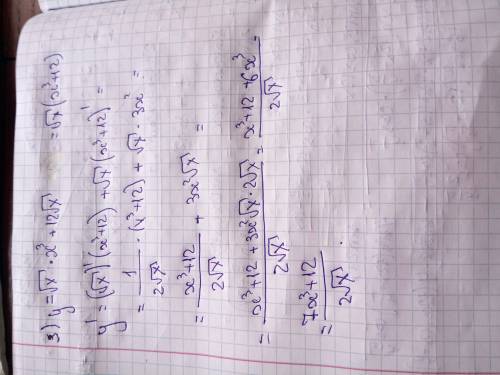 3) y = √x · x³ + 12√x = √x (x³+12)
y' = (√x)' (x³+12) + √x (x³+12)' =
= 1/(2√x) · (x³+12) + √x · 3x² =
= (x³+12)/(2√x) + 3x²√x =
= (x³+12 + 3x²√x · 2√x)/(2√x) = (x³+12+6x³)/(2√x) =
= (7x³+12)/(2√x) .